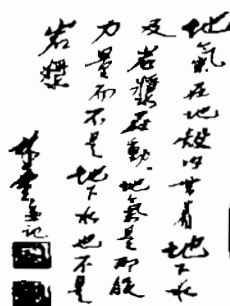 地氣在地殼內帶着地下水
及岩漿在動。地氣是那股
力量而不是地下水也不是
岩漿